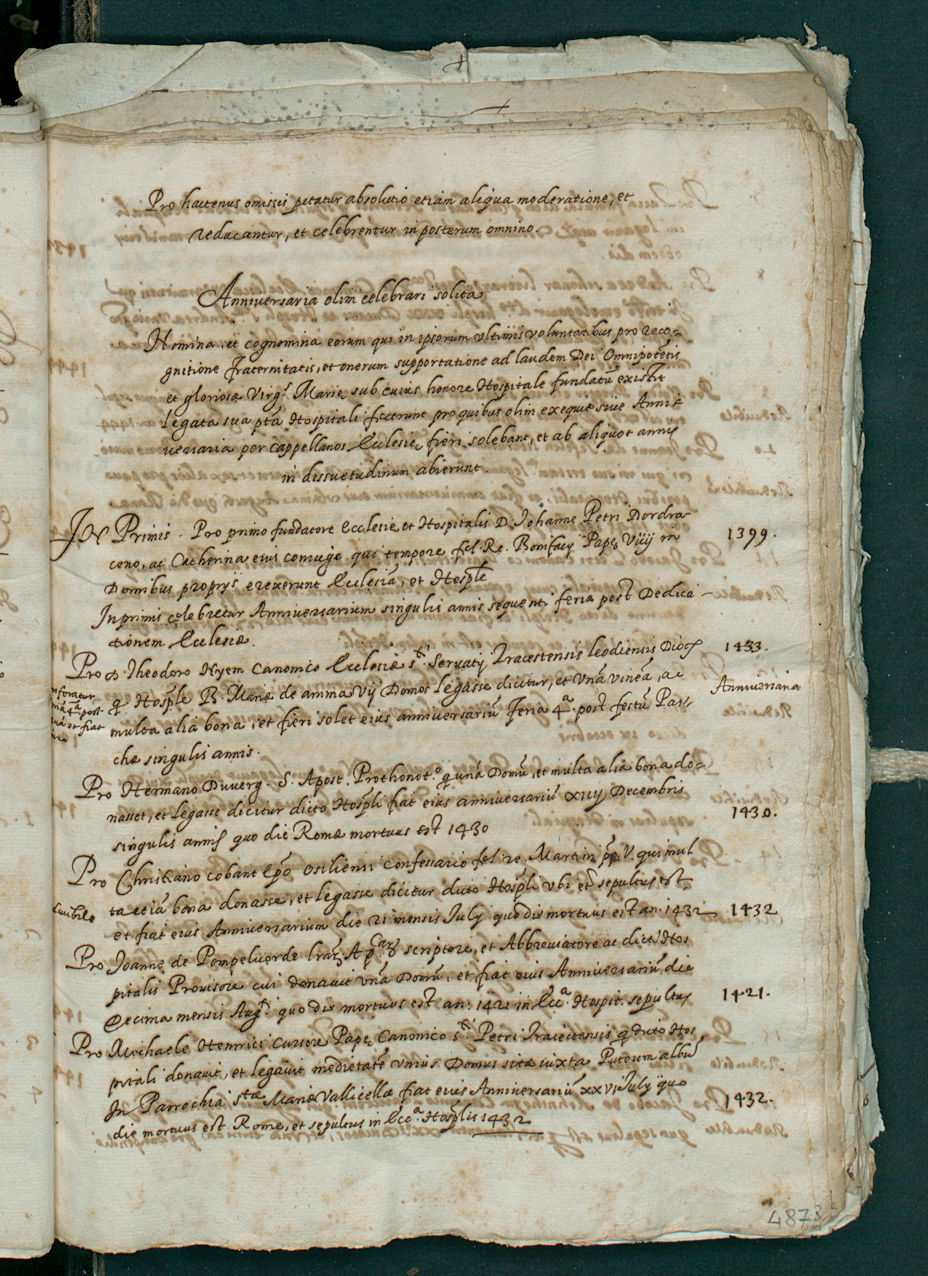 Pro hactenus omissis petatur absolutio etiam aliqua moderatione, et
reducantur, et celebrentur in posterum omnino.
Anniversaria olim celebrari solita
Nomina, et cognomina eorum qui in ipsorum ultimis voluntatibus pro reco-
gnitione fraternitatis, et onerum supportatione ad laudem Dei Omnipotētis
et gloriosæ Virg.s Mariæ, sub cuius honore Hospitale fundatū existit
Legata sua pta Hospitali fecerunt pro quibus olim exequie sive Anni
versaria per cappellanos Ecclesiæ fieri solebant, et ab aliquot annis
in dissuetudinem abierunt.
In Primis. Pro primo fundatore Ecclesie et Hospitalis D. Johanne Petri Dordra-
ceno, ac Catherina eius coniuge qui tempore fel. Re. Bonifacij Papę Viiij in 1399.
Domibus proprijs erexerunt Ecclesiā, et Hosple
In primis celebretur Anniversarium singulis annis sequenti feria post Dedica-
tionem Ecclesiæ.
Pro D. Theodoro Nyem Canonico Ecclesiæ sti Servatij Traiectensis leodiensis Dioc 1433.
q Hosple B. Mariæ de anima Vij Domos legasse dicitur, et Unā vineā, ac Anniversaria
multa alia bona, et fieri solet eius anniversariū feria 4a post festū Pas-
che singulis annis.
Pro Hermano Duverg. S. Apost. Prothonot.o q unā Domū, et multa alia bona do-
nasset, et legasse dicitur dicto Hospli fiat eius anniversariū xiiij Decembris 1430.
singulis annis quo die Romæ mortuus est 1430
Pro Christiano cobant Epo Osiliensi Confessario fel. re. Martini pp V. qui mul
ta etiā bona donasse, et legasse dicitur dicto Hospli ubi et sepultus est
et fiat eius Anniversarium die 21 mensis July quo die mortuus est an. 1432 1432
Pro Joanne de Pompelvorde lrarū Apcarū scriptore, et Abbreviatore ac dicti Hos
pitalis Provisore cui donavit unā Domū, et fiat eius Anniversariū die
Decima mensis Augti quo die mortuus est an: 1421 in Ecca Hospit. sepultus 1421.
Pro Michaele Henrici Cursore Papę Canonico sti Petri Traiectensis q dicto Hos
pitali donavit, et legavit medietatē unius Domus sitæ iuxta Puteum albū
In Parrochia stæ Mariæ Vallicellæ fiat eius Anniversariū xxvi July quo 1432.
die mortuus est Rome, et sepultus in Ecca Hosplis 1432
4873